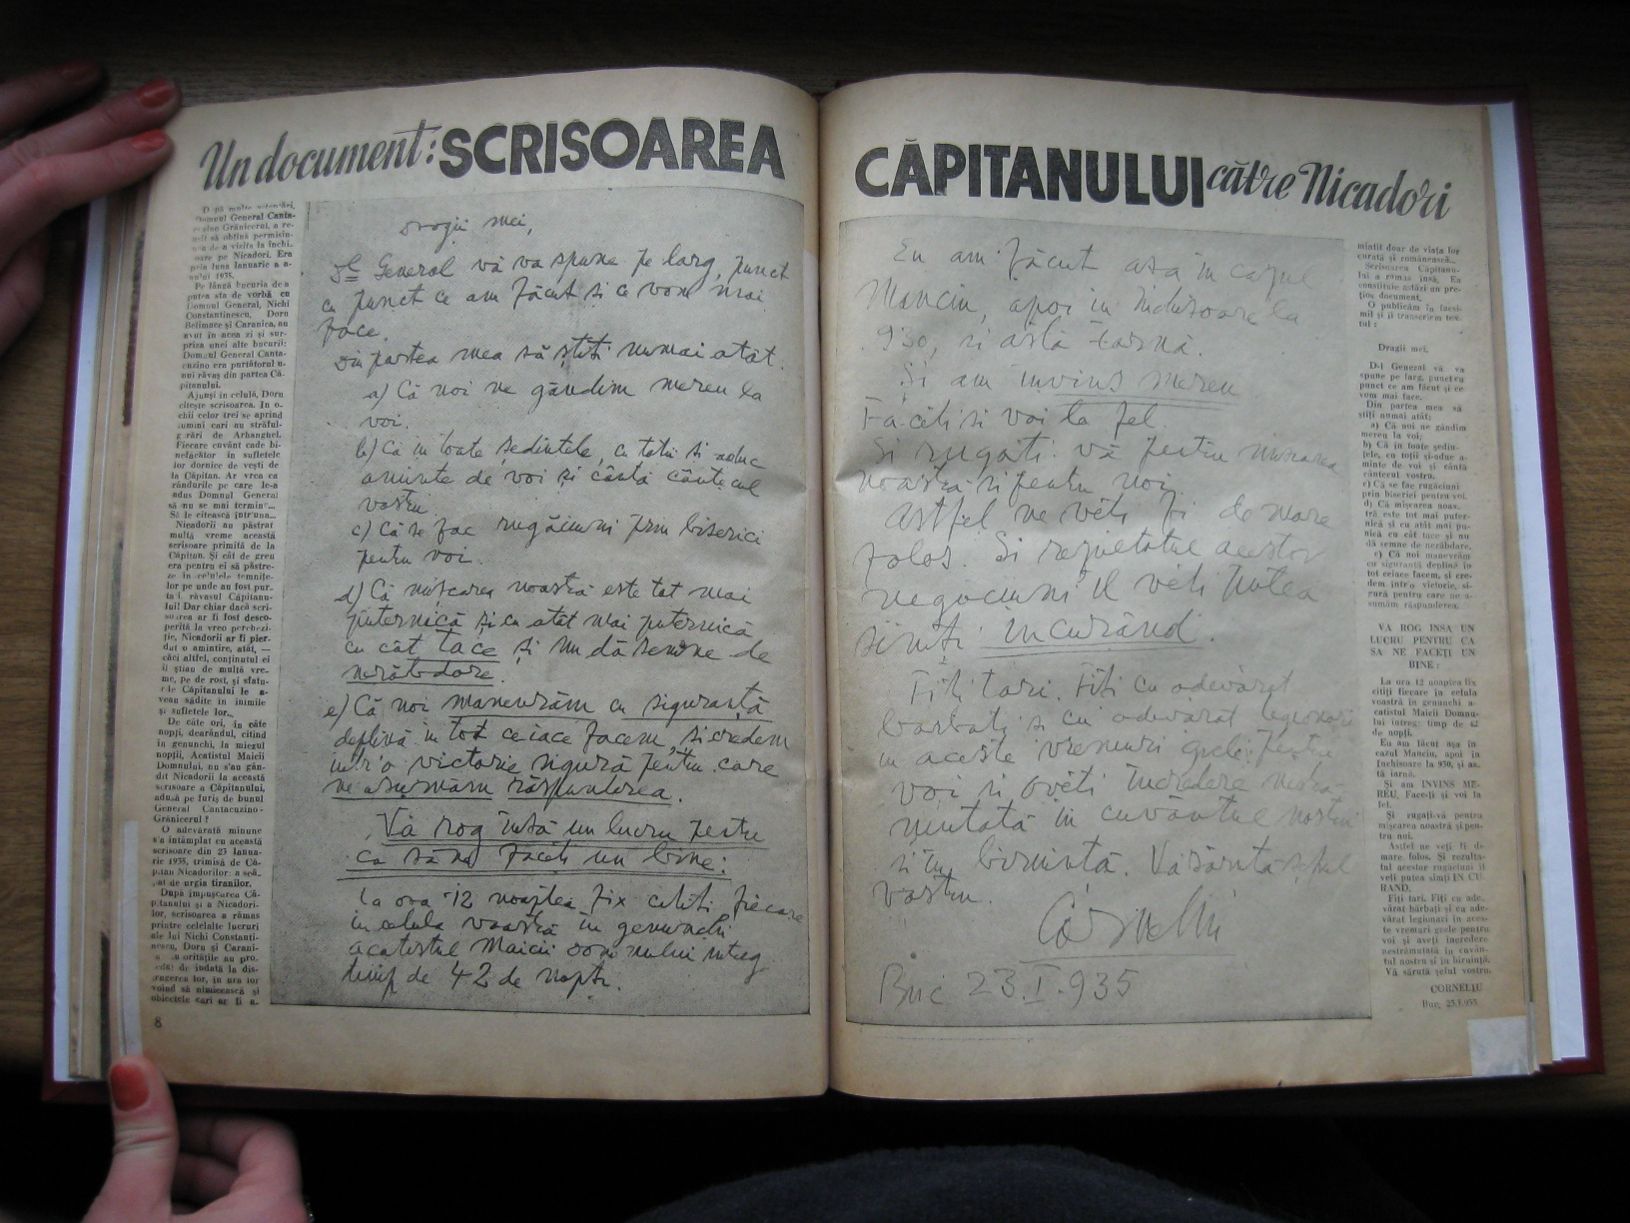 Un document: SCRISOAREA CĂPITANULUI către Nicadori
Domnul General Canta-
Grănicerul, a re-
să obțină permisiu-
de a vizita la închi-
oare pe Nicadori. Era
prin luna Ianuarie a a-
nului 1935.
Pe lângă bucuria de a
putea sta de vorbă cu
Domnul General, Nichi
Constantinescu, Doru
Belimace și Caranica, au
avut în acea zi și sur-
priza unei alte bucurii:
Domnul General Canta-
cuzino era purtătorul u-
nui răvaș din partea Că-
pitanului.
Ajunși în celulă, Doru
citește scrisoarea. In o-
chii celor trei se aprind
lumini cari au străful-
gerări de Arhanghel.
Fiecare cuvânt cade bi-
nefăcător în sufletele
lor dornice de vești de
la Căpitan. Ar vrea ca
rândurile pe care le-a
adus Domnul General
să nu se mai termine...
Să le citească într'una...
Nicadorii au păstrat
multă vreme această
scrisoare primită de la
Căpitan. Și cât de greu
era pentru ei să păstre-
ze în celulele temnițe-
lor pe unde au fost pur-
tați, răvașul Căpitanu-
lui! Dar chiar dacă scri-
soarea ar fi fost desco-
perită la vreo perchezi-
ție, Nicadorii ar fi pier-
dut o amintire, atât, —
căci altfel, conținutul ei
îl știau de multă vre-
me, pe de rost, și sfatu-
rile Căpitanului le a-
veau sădite în inimile
și sufletele lor...
De câte ori, în câte
nopți, dearândul, citind
în genunchi, la miezul
nopții, Acatistul Maicii
Domnului, nu s'au gân-
dit Nicadorii la această
scrisoare a Căpitanului,
adusă pe furiș de bunul
General Cantacuzino-
Grănicerul?
O adevărată minune
s'a întâmplat cu această
scrisoare din 23 Ianua-
rie 1935, trimisă de Că-
pitan Nicadorilor: a scă-
pat de urgia tiranilor.
După împușcarea Că-
pitanului și a Nicadori-
lor, scrisoarea a rămas
printre celelalte lucruri
ale lui Nichi Constanti-
nescu, Doru și Carani-
autoritățile au pro-
cedat de îndată la dis-
trugerea lor, în ura lor
voind să nimicească și
obiectele cari ar fi a-
8
Dragii mei,
Dl General vă va spune pe larg, punct
cu punct ce am făcut si ce vom mai
face.
Din partea mea să știți numai atât.
a) Că noi ne gândim mereu la
voi.
b) Că in toate ședintele, cu totii si aduc
aminte de voi si cântă cântecul
vostru.
c) Că se fac rugăciuni prin biserici
pentru voi.
d) Că mișcarea noastră este tot mai
puternică și cu atât mai puternică
cu cât tace și nu dă semne de
nerăbdare.
e) Că noi manevrăm cu siguranță
deplină în tot ceiace facem, si credem
intr'o victorie sigură pentru care
ne asumăm răspunderea.
Vă rog însă un lucru pentru
ca să ne faceti un bine:
la ora 12 noaptea fix cititi fiecare
in celula voastră in genunchi
acatistul Maicii Domnului intreg
timp de 42 de nopti.
Eu am făcut asa in cazul
Manciu, apoi in închisoare la
930, si astă iarnă.
Și am învins mereu
Faceti si voi la fel.
Si rugati-vă pentru miscarea
noastră si pentru noi.
Astfel ne veti fi de mare
folos. Si rezultatul acestor
rugaciuni il veti putea
simti in curând.
Fiti tari. Fiti cu adevărat
barbati si cu adevarat legionari
in aceste vremuri grele pentru
voi si aveti încredere nestră-
mutată in cuvântul nostru
si in biruintă. Vă sărută șeful
vostru.
Corneliu
Buc 23.I.935
miatit doar de viața lor
curată și românească..
Scrisoarea Căpitanu-
lui a rămas însă. Ea
constituie astăzi un pre-
țios document.
O publicăm în facsi-
mil și îi transcriem tex-
tul:
Dragii mei,
D-l General vă va
spune pe larg, punct cu
punct ce am făcut și ce
vom mai face.
Din partea mea să
știți numai atât:
a) Că noi ne gândim
mereu la voi;
b) Că în toate ședin-
țele, cu toții și-aduc a-
minte de voi și cântă
cântecul vostru.
c) Că se fac rugăciuni
prin biserici pentru voi.
d) Că mișcarea noas-
tră este tot mai puter-
nică și cu atât mai pu-
ternică cu cât tace și nu
dă semne de nerăbdare.
e) Că noi manevrăm
cu siguranță deplină în
tot ceiace facem, și cre-
dem într'o victorie, si-
gură pentru care ne a-
sumăm răspunderea.
VA ROG INSA UN
LUCRU PENTRU CA
SA NE FACEȚI UN
BINE:
La ora 12 noaptea fix
citiți fiecare în celula
voastră în genunchi a-
catistul Maicii Domnu-
lui întreg: timp de 42
de nopți.
Eu am făcut așa în
cazul Manciu, apoi în
închisoare la 930, și as-
tă iarnă.
Și am INVINS ME-
REU. Faceți și voi la
fel.
Și rugați-vă pentru
mișcarea noastră și pen-
tru noi.
Astfel ne veți fi de
mare folos. Și rezulta-
tul acestor rugăciuni îl
veți putea simți IN CU-
RAND.
Fiți tari. Fiți cu ade-
vărat bărbați și cu ade-
vărat legionari în aces-
te vremuri grele pentru
voi și aveți încredere
nestrămutată în cuvân-
tul nostru și în biruință.
Vă sărută șeful vostru.
CORNELIU
Buc. 23.I.935.